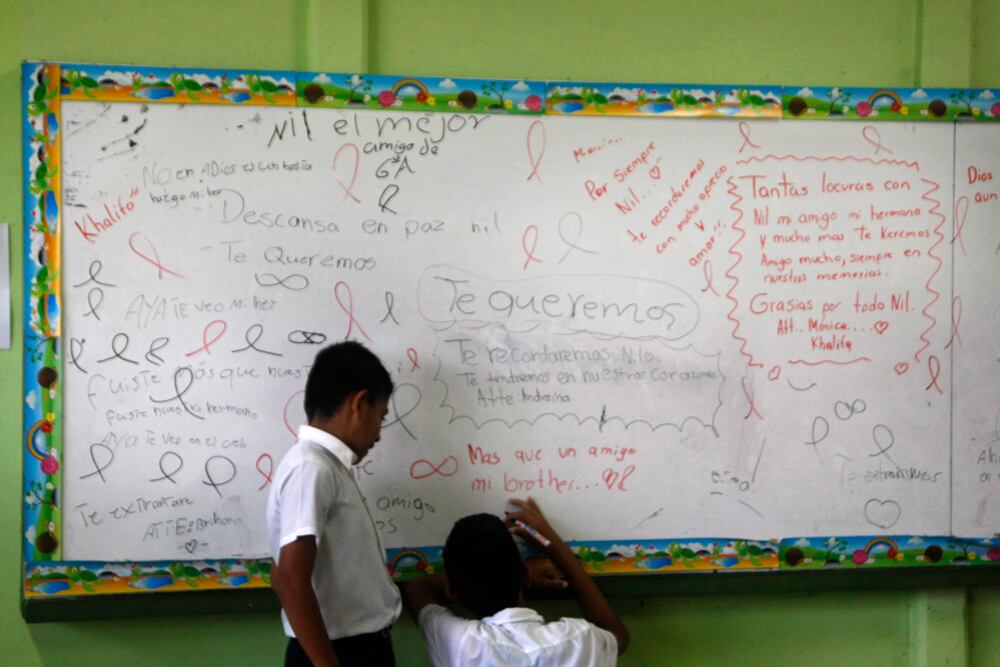 Nil el mejor
amigo de
6ºA
No en ADios es un hasta
luego Mi her
Khalifa"
Descansa en paz nil
Te Queremos
AYA Te veo Mi her
fuiste más que nuestro
fuiste nuestro hermano
AYA Te veo en el cielo
Te extrañare
ATTE: Brihana
Por siempre
Nil....
te recordaremos
con mucho aprecio
y
amor!!
Te queremos
Te recordaremos Nilo
Te tendremos en nuestros corazones
Atte Andreina
Mas que un amigo
mi brother...
amigo
Tantas locuras con
Nil mi amigo mi hermano
y mucho mas Te Keremos
Amigo mucho, siempre en
nuestras memorias.
Grasias por todo Nil.
Att.. Mónica....
Khalifa
Te extrañamos
Dios
aun